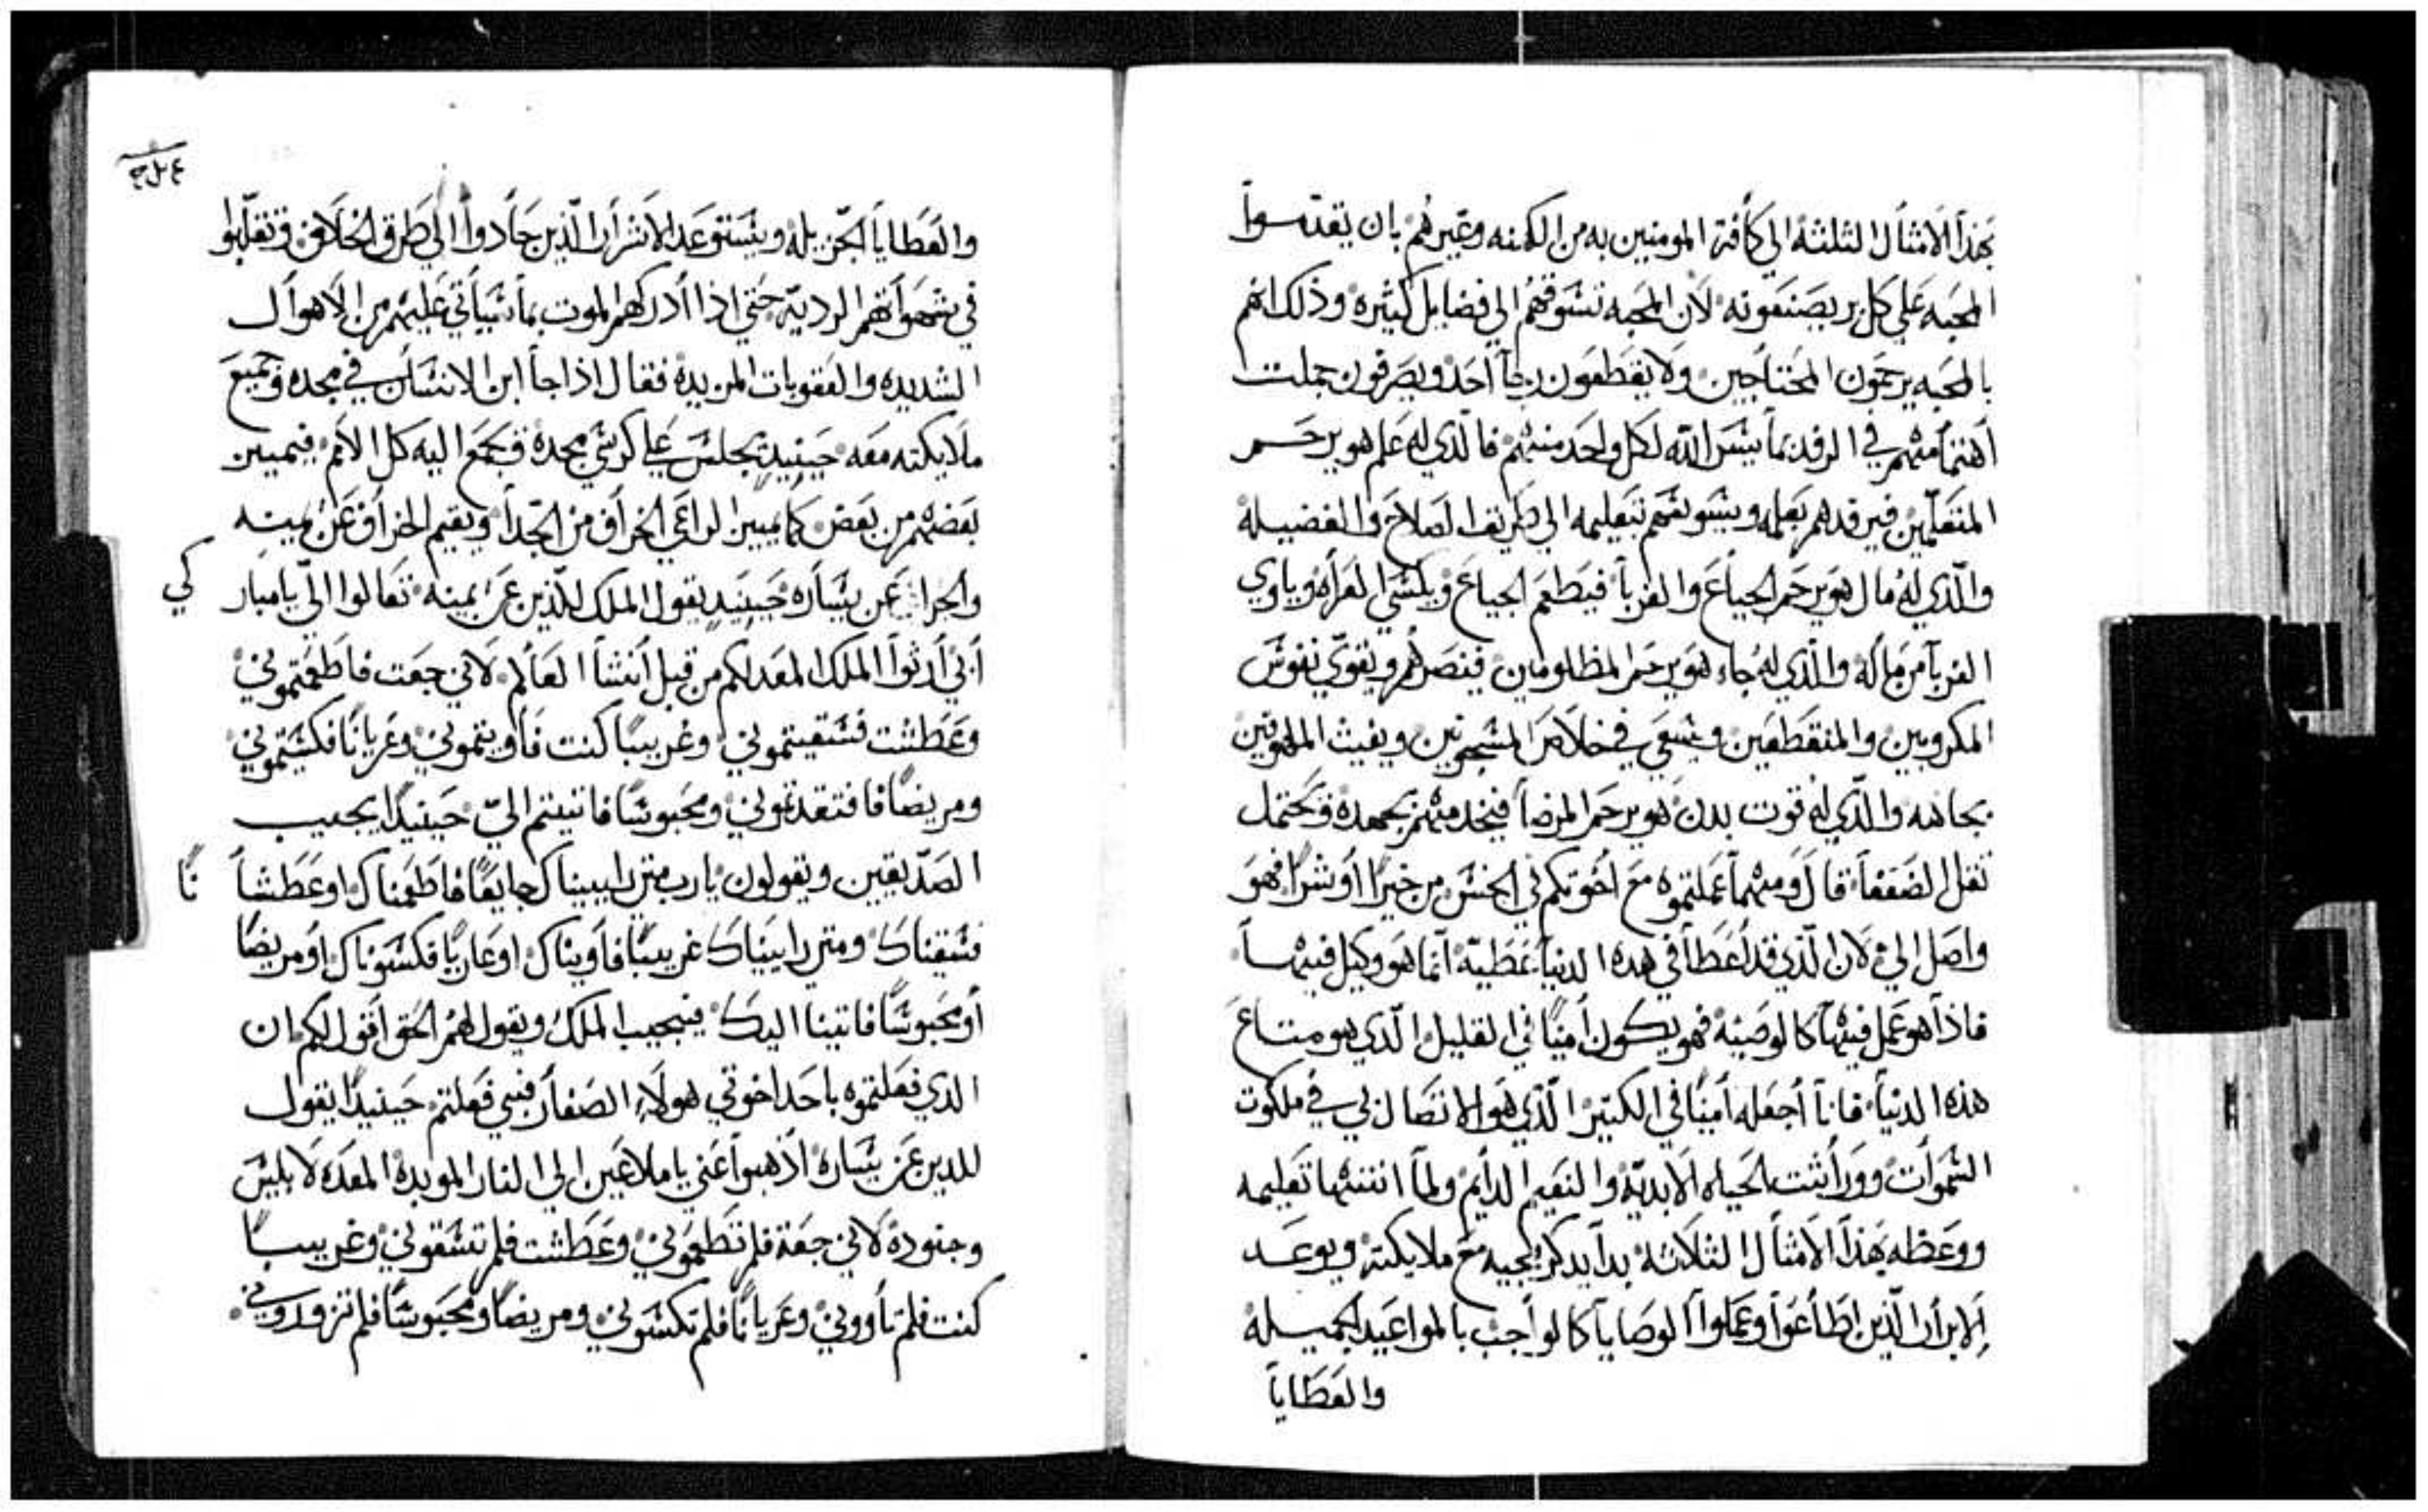 بهذا الامثال الثلثة الي كافة المومنين به من الكهنه وغيرهم بان يقدموا
المحبه علي كل بر يصنعونه لان المحبه تسوقهم الي فضايل كثيره وذلك انهم
بالمحبه يرحمون المحتاجين ولا يقطعون رجا أحد ويصرفون جملت
أهتمامهم في الرفد بما يسر الله لكل واحد منهم فالذي له علم هو يرحم
المتعلمين فيرفدهم بعلمه ويسوسهم بتعليمه الي طريق الصلاح والفضيلة
والذي له مال هو يرحم الجياع والغربا فيطعم الجياع ويكسي العراه وياوي
الغربا من ماله والذي له جاه هو يرحم المظلومين فينصرهم ويقوي نفوس
المكروبين والمنقطعين ويسعي في خلاص المسجونين ويغيث الملهوفين
بجاهه والذي له قوت بدن هو يرحم المرضا فيخدمهم بجهده ويحتمل
ثقل الضعفا قال ومهما عملتموه مع اخوتكم في الجنس من خيرا أو شرا فهو
واصل الي لان الذي قد أعطا في هده الدنيا عطية انما هو وكيل فيها
فاذا هو عمل فيها كالوصية فهو يكون أمينا في القليل الذي هو متاع
هذه الدنيا فانا أجعله أمينا في الكتير الذي هو الاتصال بي في ملكوت
السموات ووراثت الحياه الابدية والنعيم الدايم ولما انتها تعليمه
ووعظه بهذا الامثال الثلاثة بدا يدكر مجيه مع ملايكته ويوعد
الابرار الذين اطاعوا وعملوا الوصايا كالواجب بالمواعيد الجميلة
والعطايا
والعطايا الجزيله ويستوعد الاشرار الذين حادوا الي طرق الخلاف وتقلبوا
في شهواتهم الردية حتي اذا أدركهم الموت بما سياتي عليهم من الاهوال
الشديده والعقوبات المريدة فقال اذا جا ابن الانسان في مجده وجميع
ملايكته معه حينيد يجلس علي كرسي مجده وتجمع اليه كل الامم فيميين
بعضهم من بعض كما يميين الراعي الخراف من الجدا ويقيم الخراف عن يمينه
والجدا عن يساره حينيد يقول الملك للذين عن يمينه تعالوا الي يا مبار
كي
أبي أرثوا الملك المعد لكم من قبل أنشا العالم لاني جعت فاطعمتموني
وعطشت فسقيتموني وغريبا كنت فأويتموني وعريانا فكسيتموني
ومريضا فافتقدتموني ومحبوسا فاتيتم الي حينيدا يجيب
الصديقين ويقولون يارب متي راييناك جايعا فاطعمناك او عطشا
نا
فسقيناك ومتي راييناك غريبا فأويناك او عاريا فكسوناك او مريضا
أو محبوسا فاتينا اليك فيجيب الملك ويقول لهم الحق اقول لكم ان
الذي فعلتموه باحد اخوتي هولاء الصغار فبي فعلتم حينيدا يقول
للدين عن يساره اذهبوا عني يا ملاعين الي النار الموبدة المعده لابليس
وجنوده لاني جعة فلم تطعموني وعطشت فلم تسقوني وغريبا
كنت فلم تأووني وعريانا فلم تكسوني ومريضا ومحبوسا فلم تزوروني